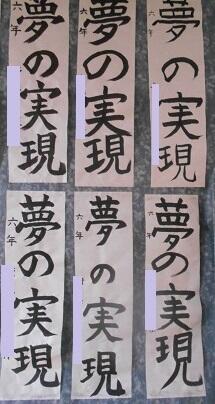 夢の実現
六年
夢の実現
六年
夢の実現
六年
夢の実現
六年
夢の実現
六年
夢の実現
六年